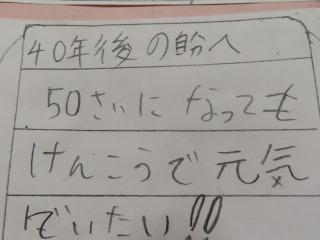 40年後の自分へ
50さいになっても
けんこうで元気
でいたい!!